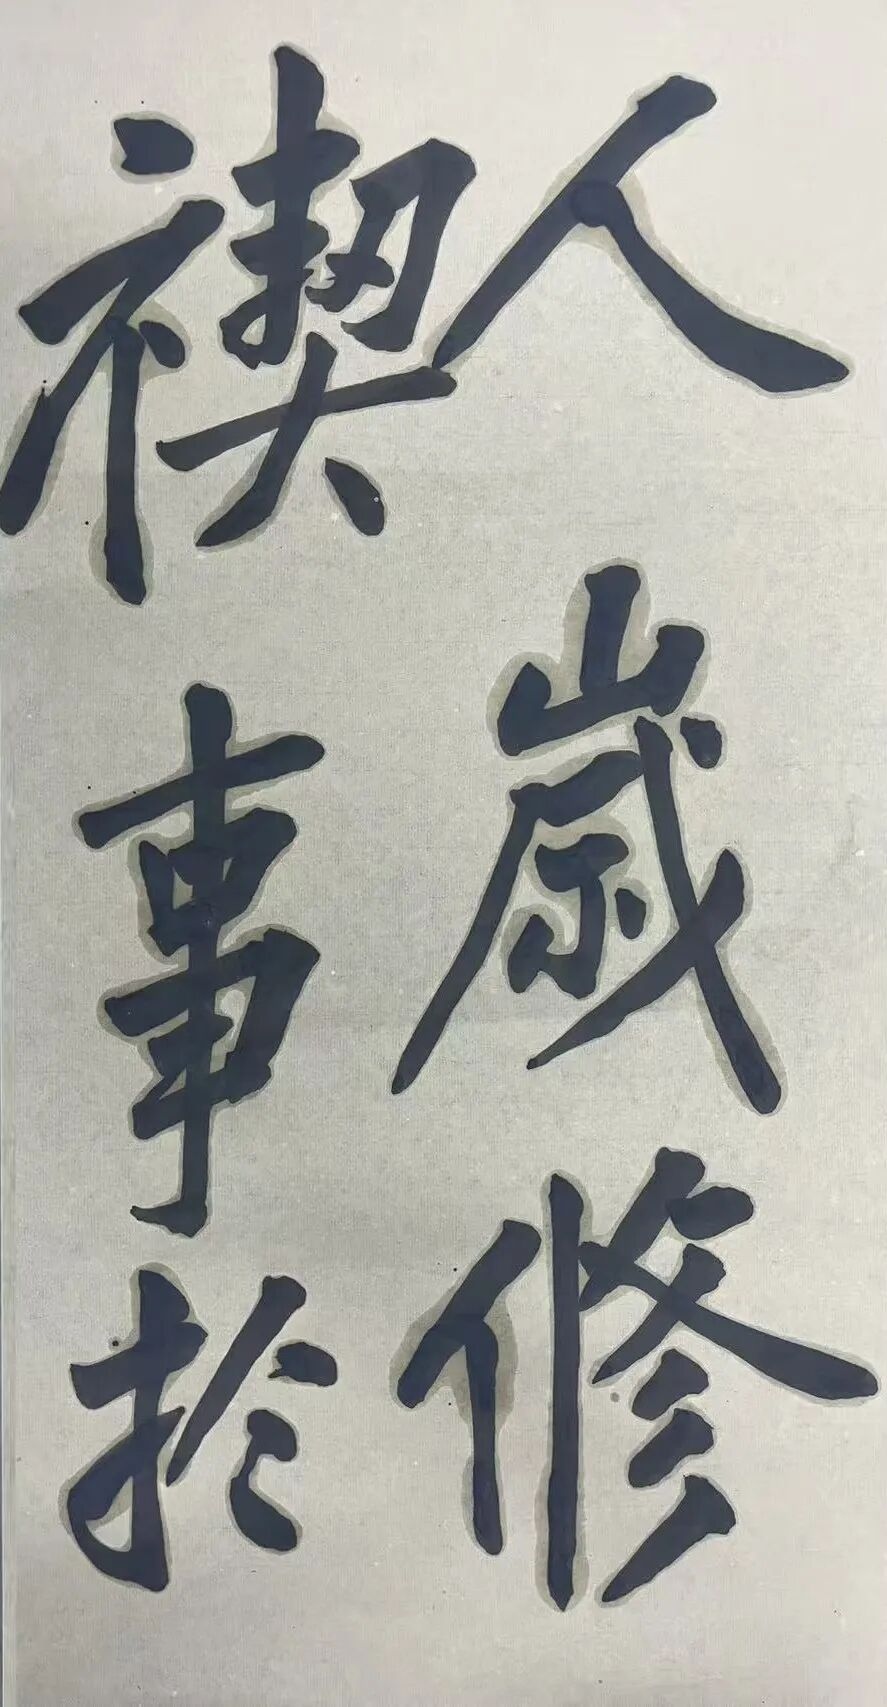 人歲修
禊事於